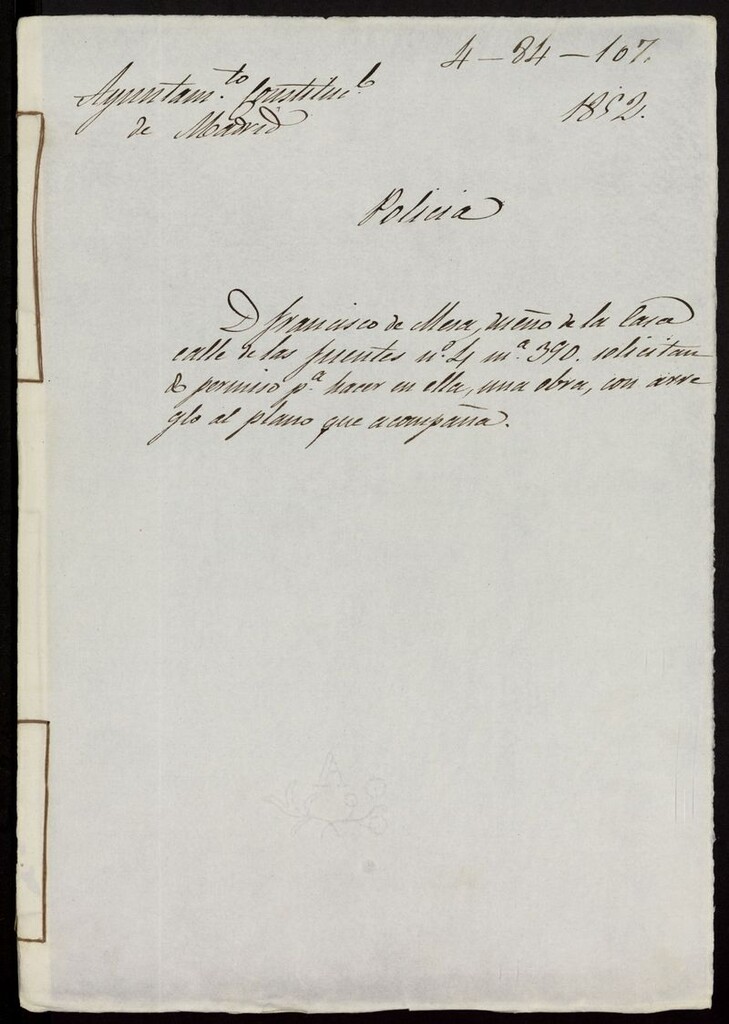 4-84-107.
Ayuntam.to Constituc.l
de Madrid
1852.
Policia
D Francisco de Mesa, dueño de la Casa
calle de las fuentes nº. 4 m.a 390. solicitan
do permiso p.a hacer en ella, una obra, con arre
glo al plano que acompaña.